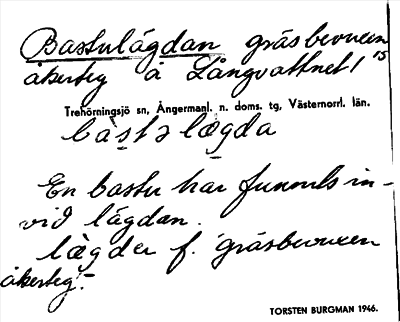 Bastulägdan gräsbevuxen
åkerteg å Långvattnet 1 15
Trehörningsjö sn, Ångermanl. n. doms. tg, Västernorrl. län.
bàstəlægda
En bastu har funnits in-
vid lägdan.
lægder f. gräsbevuxen
åkerteg.-
TORSTEN BURGMAN 1946.